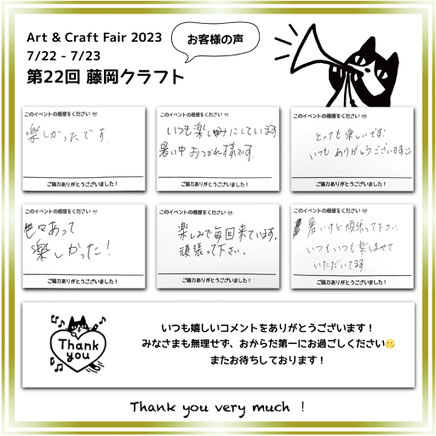 Art & Craft Fair 2023
7/22 - 7/23
第22回 藤岡クラフト
お客様の声
このイベントの感想をください
楽しかったです
ご協力ありがとうございました！
このイベントの感想をください
いつも楽しみにしています
暑い中おつかれ様です。
ご協力ありがとうございました！
このイベントの感想をください
とっても楽しいです。
いつもありがとうございます
ご協力ありがとうございました！
このイベントの感想をください
色々あって
楽しかった！
ご協力ありがとうございました！
このイベントの感想をください
楽しみで毎回来ています。
頑張って下さい。
ご協力ありがとうございました！
このイベントの感想をください
暑いけど頑張って下さい
いつもいつも楽しませて
いただいてます。
ご協力ありがとうございました！
Thank
you
いつも嬉しいコメントをありがとうございます！
みなさまも無理せず、おからだ第一にお過ごしください
またお待ちしております！
Thank you very much ！